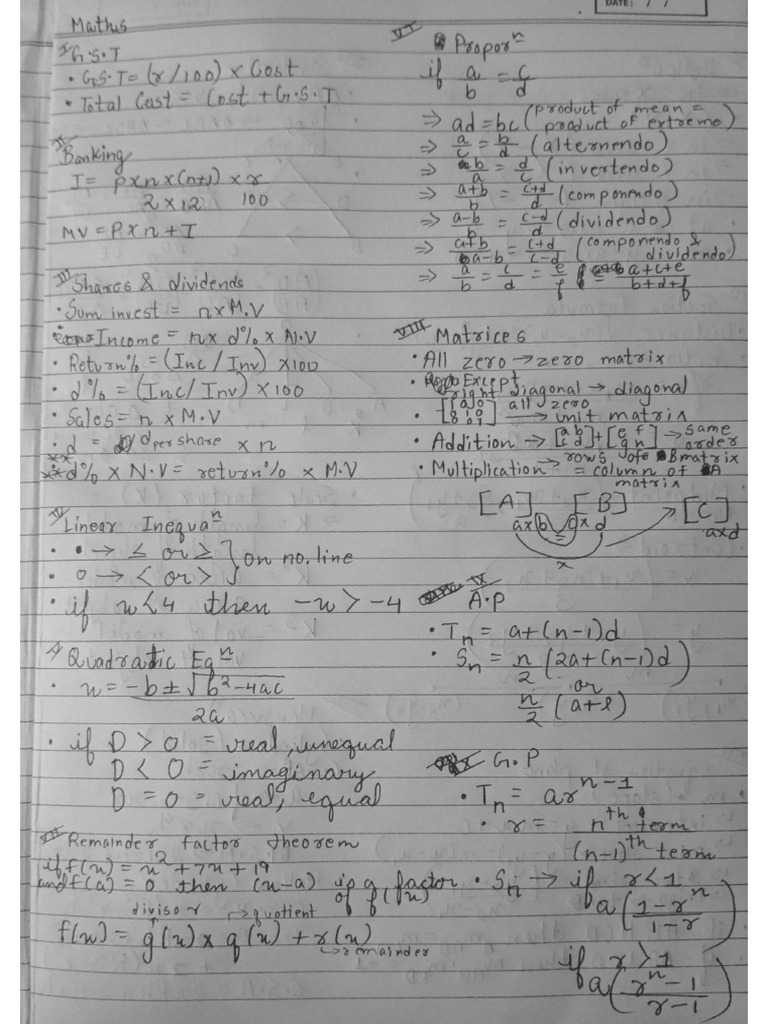 DATE: / /
Maths
I G.S.T
• G.S.T = (r/100) × Cost
• Total Cost = Cost + G.S.T
II Banking
I = P×n×(n+1) × r
2 × 12 100
MV = P×n + I
III Shares & dividends
• Sum invest = n×M.V
Income = n× d% × N.V
• Return% = (Inc / Inv) ×100
• d% = (Inc/ Inv) ×100
• Sales = n × M.V
• d = d per share × n
** d% × N.V = return% × M.V
IV Linear Inequaⁿ
• • → ≤ or ≥ } on no. line
• o → < or > }
• if x<4 then -x > -4
V Quadratic Eqⁿ
• x = -b ± √b²-4ac
2a
• if D > 0 = real, unequal
D < 0 = imaginary
D = 0 = real, equal
VII Remainder factor theorem
if f(x) = x² + 7x + 19
and f(a) = 0 then (x-a) is a factor
of f(x)
divisor → quotient
f(x) = g(x) × q(x) + r(x)
↳ remainder
VI Proporⁿ
if a/b = c/d
⇒ ad = bc (product of mean =
product of extreme)
⇒ a/c = b/d (alternendo)
⇒ b/a = d/c (invertendo)
⇒ a+b/b = c+d/d (componendo)
⇒ a-b/b = c-d/d (dividendo)
⇒ a+b/a-b = c+d/c-d (componendo &
dividendo)
⇒ a/b = c/d = e/f = a+c+e/b+d+f
VIII Matrices
• All zero → zero matrix
• Except
right diagonal → diagonal
all zero
→ unit matrix
• Addition → [a b c d] + [e f g h] → same
order
• Multiplication → rows of B matrix
= column of A
matrix
[A] [B] → [C]
a×b c×d a×d
=
x
IX A.P
• Tn = a+(n-1)d
• Sn = n/2 (2a+(n-1)d)
or
n/2 (a+l)
G.P
• Tn = arⁿ⁻¹
• r = nᵗʰ term
(n-1)ᵗʰ term
• Sn → if r<1
a(1-rⁿ/1-r)
if r>1
a(rⁿ-1/r-1)